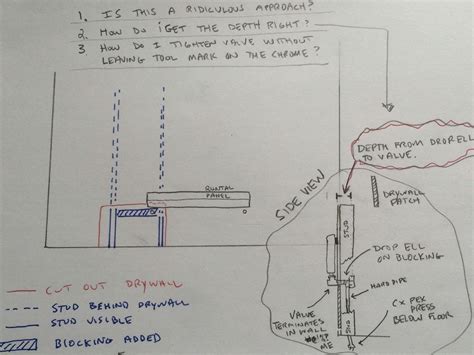 1. IS THIS A RIDICULOUS APPROACH?
2. HOW DO I GET THE DEPTH RIGHT?
3 HOW DO I TIGHTEN VALVE WITHOUT
LEAVING TOOL MARK ON THE CHROME?
DEPTH FROM DROP ELL
TO VALVE.
SIDE VIEW
DRYWALL
PATCH
RUNTAL
PANEL
STUD
DROP ELL
ON BLOCKING
HARD PIPE
CX PEX
PRESS
BELOW FLOOR
STUD
VALVE
TERMINATES
IN WALL
ME
CUT OUT DRYWALL
STUD BEHIND DRYWALL
STUD VISIBLE
BLOCKING ADDED